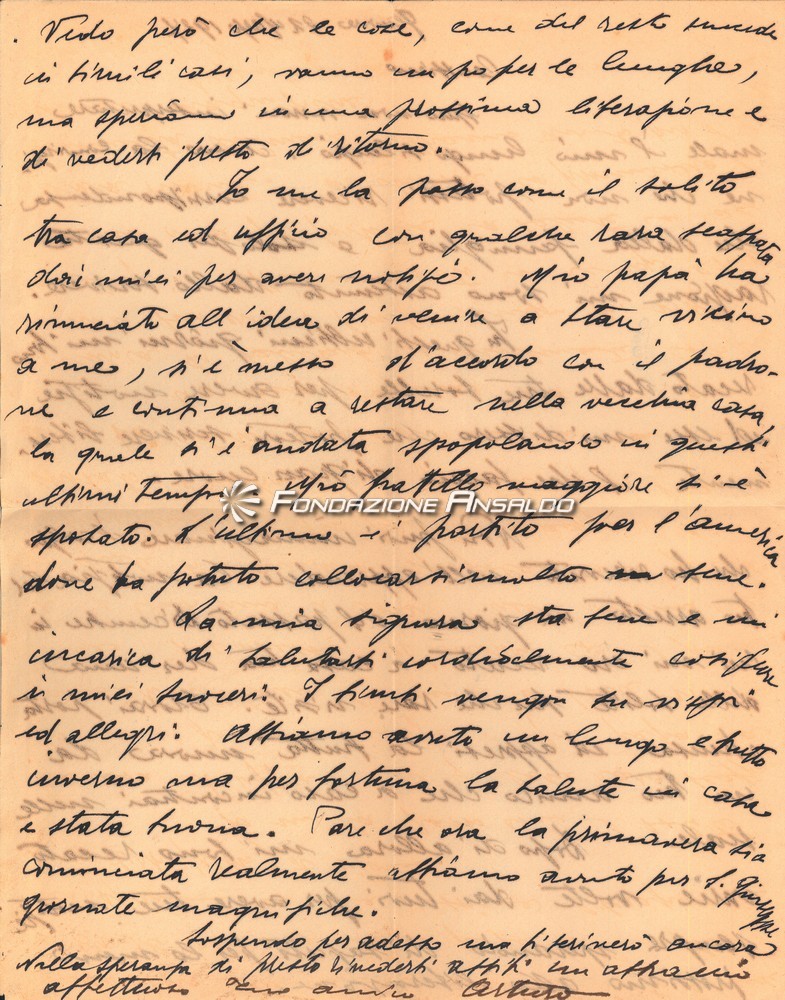 . Vedo però che le cose, come del resto succede
in simili casi, vanno un po per le lunghe,
ma speriamo in una prossima liberazione e
di vederti presto di ritorno.
Io me la passo come il solito
tra casa ed ufficio con qualche rara scappata
dai miei per avere notizie. Mio papà ha
rinunciato all'idea di venire a stare vicino
a me, s'è messo d'accordo con il padro-
ne e continua a restare nella vecchia casa,
la quale s'è andata spopolando in questi
ultimi tempi. Mio fratello maggiore si è
sposato. L'ultimo è partito per l'america
dove ha potuto collocarsi molto bene.
La mia signora sta bene e mi
incarica di salutarti cordialmente così pure
i miei suoceri. I bimbi vengon su vispi
ed allegri. Abbiamo avuto un lungo e brutto
inverno ma per fortuna la salute in casa
è stata buona. Pare che ora la primavera sia
cominciata realmente abbiamo avuto per S. Giuseppe
giornate magnifiche.
Sospendo per adesso ma ti scriverò ancora
Nella speranza di presto rivederti abbiti un abbraccio
affettuoso tuo amico Arturo
Fondazione Ansaldo